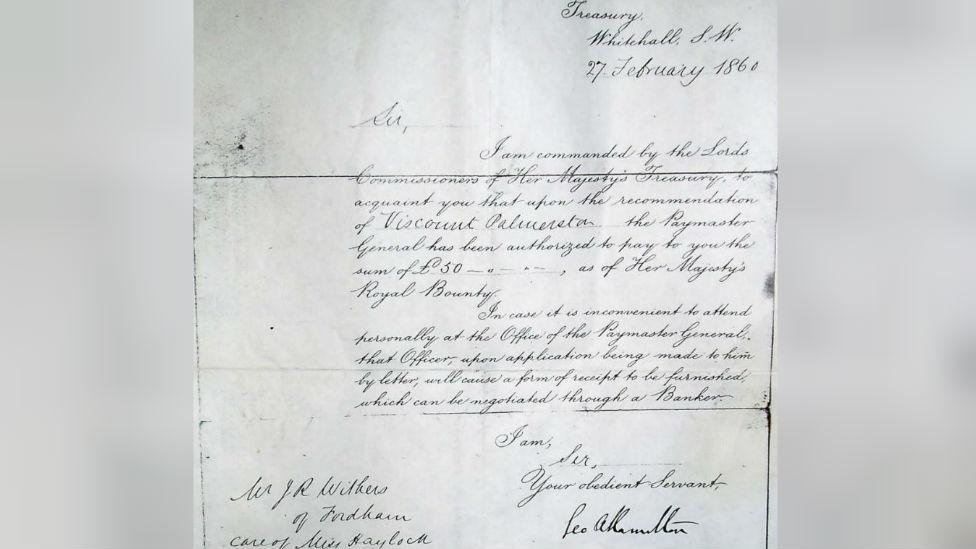 Treasury,
Whitehall, S.W.
27 February 1860
Sir,
I am commanded by the Lords
Commissioners of Her Majesty's Treasury, to
acquaint you that upon the recommendation
of Viscount Palmersto the Paymaster
General has been authorized to pay to you the
sum of £50 — " — " —, as of Her Majesty's
Royal Bounty.
In case it is inconvenient to attend
personally at the Office of the Paymaster General,
that Officer, upon application being made to him
by letter, will cause a form of receipt to be furnished,
which can be negotiated through a Banker
I am,
Sir,
Your obedient Servant,
Geo A Hamilton
Mr J R Withers
of Fordham
care of Miss Haylock